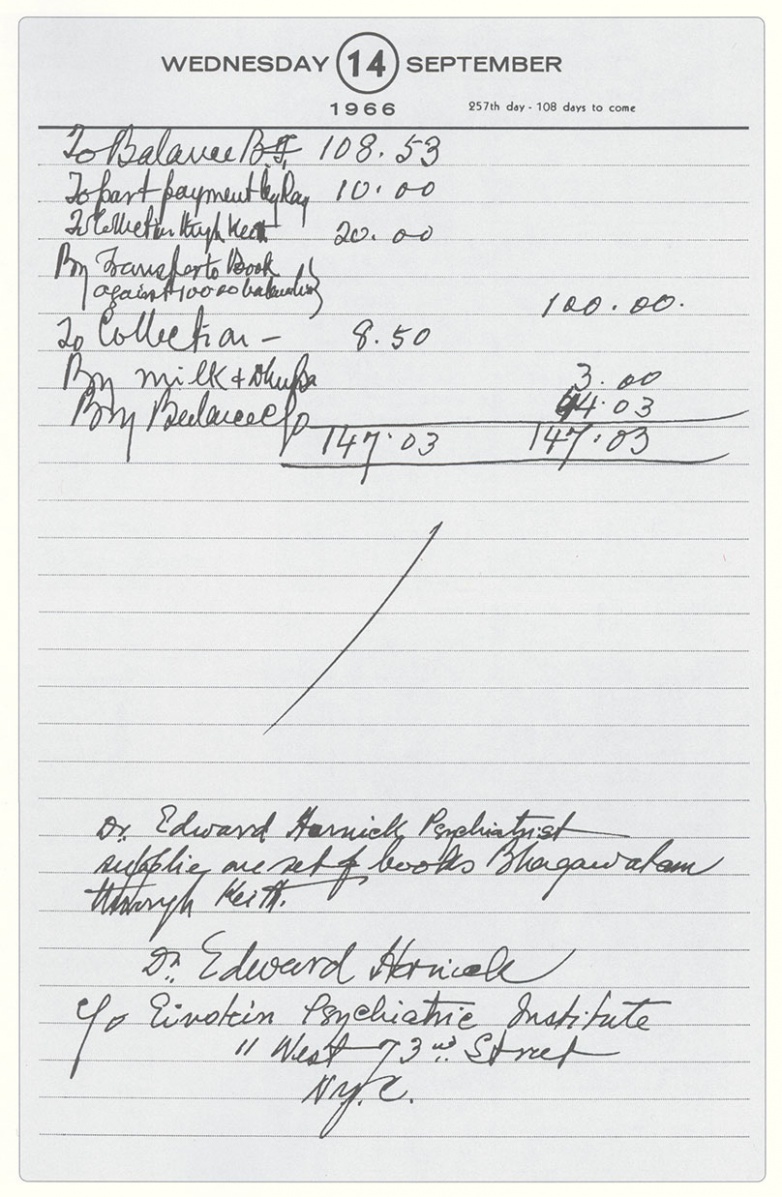 WEDNESDAY 14 SEPTEMBER
1966 257th day - 108 days to come
To Balance B.F. 108.53
To part payment by Ray 10.00
To Collection through Keith 20.00
By Transfer to Book
against 100.00 100.00.
To Collection - 8.50
By milk & Dhupa 3.00
By Balance C/o 44.03
147.03 147.03
Dr. Edward Hornick Psychiatrist
supplie one set of books Bhagawatam
through Keith.
Dr. Edward Hornick
C/o Einstein Psychiatric Institute
11 West 73rd. Street
N.y.C.